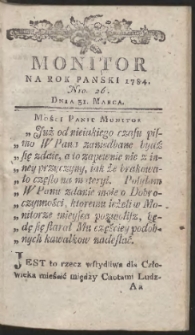 MONITOR
NA ROK PANSKI 1784.
Nro. 26.
DNIA 31. MARCA.
MOŚCI PANIE MONITOR
„ Już od nieiakiego czasu pis-
„ mo W Pana zaniedbane bydź
„ się zdaie, a to zapewnie nie z in-
„ ney przyczyny, iak że brakowa-
„ ło często na materyi. Posyłam
„ W Panu zdanie moie o Dobro-
„ czynności, ktoremu ieżeli w Mo-
„ nitorze mieysca pozwolisz, bę-
„ dę się starał Mu częściey podob-
„ nych kawałkow nadesłać.
JEST to rzecz wstydliwa dla Czło-
wieka mieścić między Cnotami Ludz-
Aa